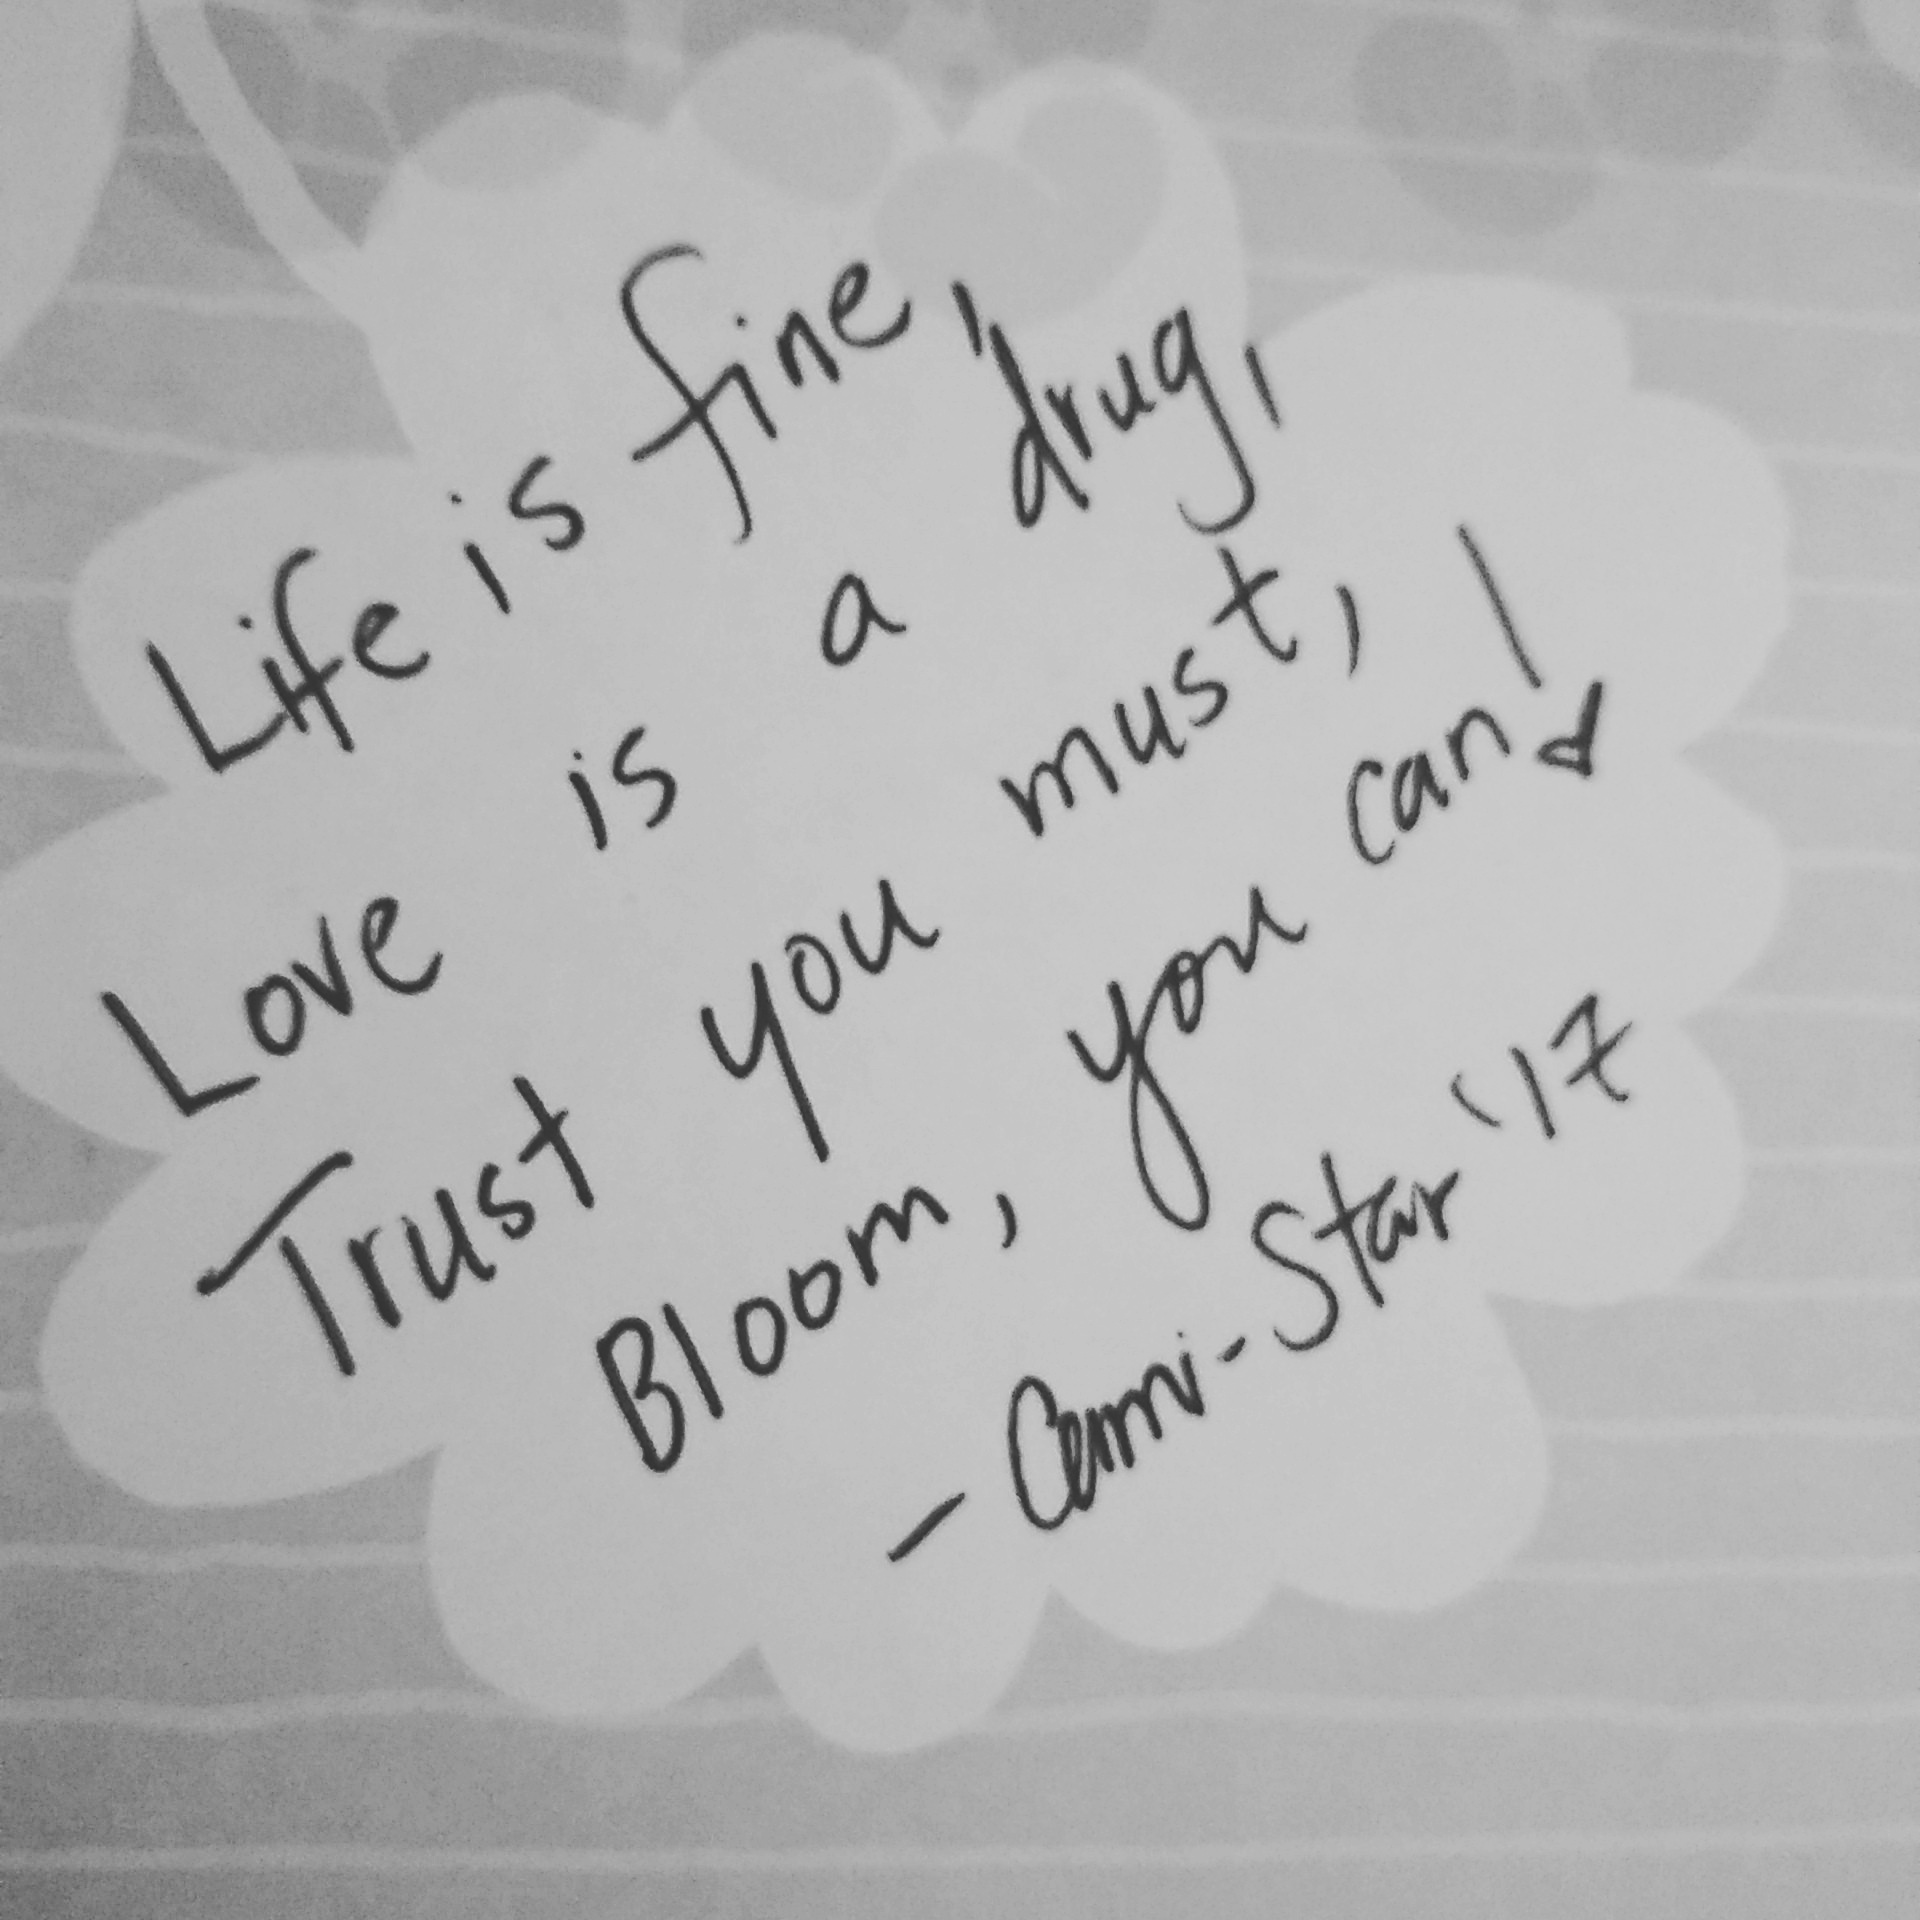 Life is fine,
Love is a drug,
Trust you must,
Bloom, you can!
- Cami-Star '17